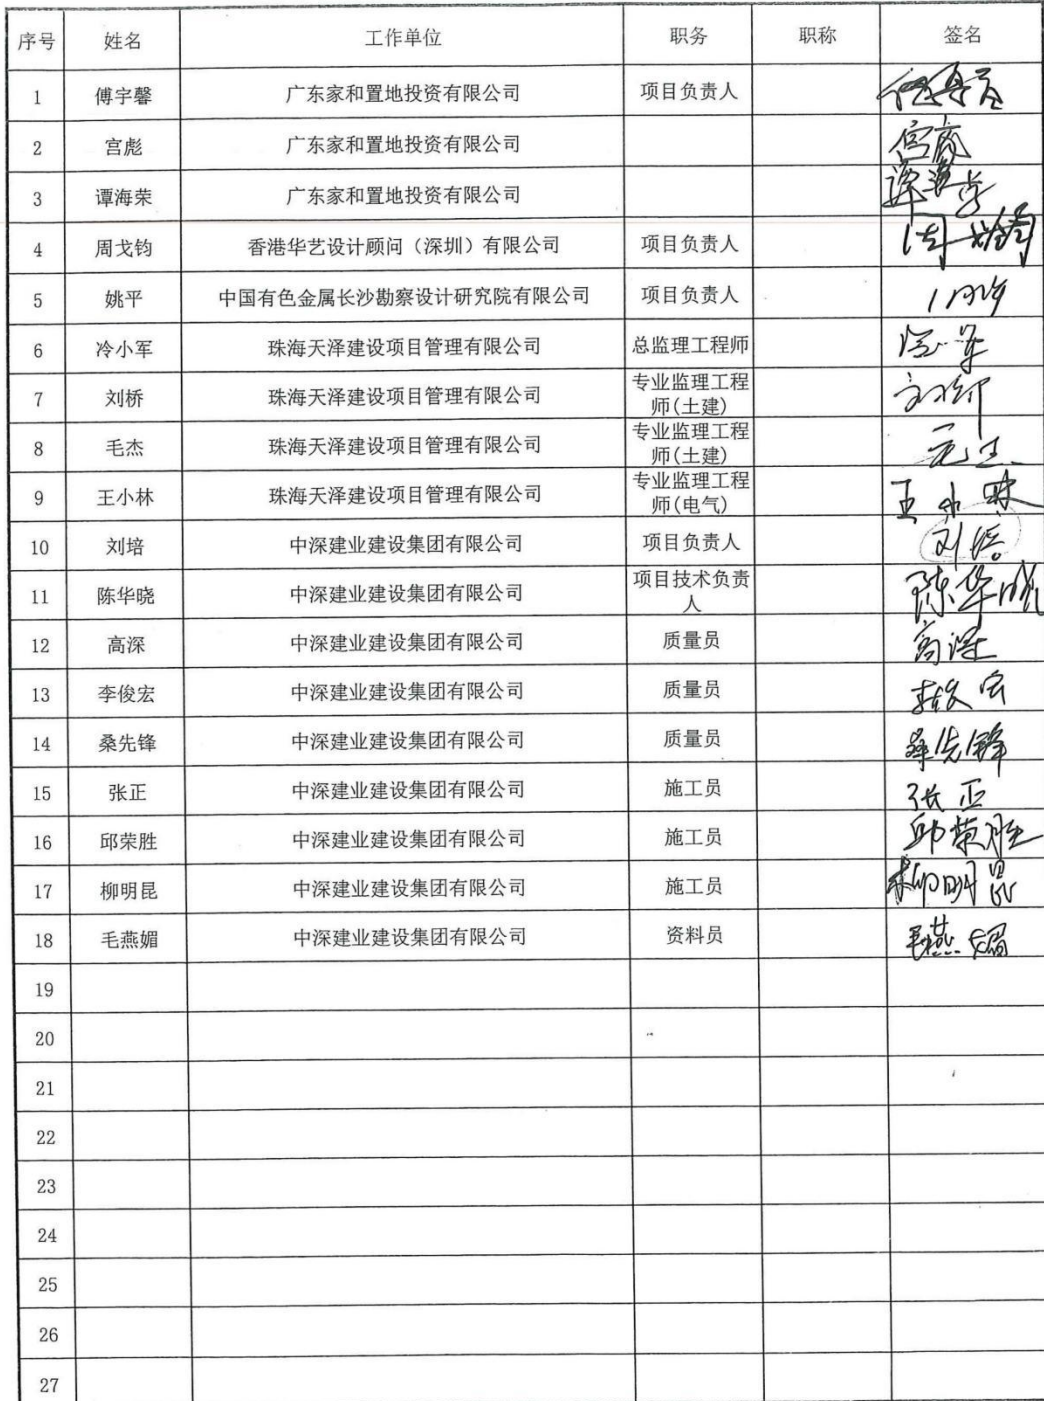 序号 姓名 工作单位 职务 职称 签名
1 傅宇馨 广东家和置地投资有限公司 项目负责人
2 宫彪 广东家和置地投资有限公司
3 谭海荣 广东家和置地投资有限公司
4 周戈钧 香港华艺设计顾问（深圳）有限公司 项目负责人
5 姚平 中国有色金属长沙勘察设计研究院有限公司 项目负责人
6 冷小军 珠海天泽建设项目管理有限公司 总监理工程师
7 刘桥 珠海天泽建设项目管理有限公司 专业监理工程
师(土建)
8 毛杰 珠海天泽建设项目管理有限公司 专业监理工程
师(土建)
9 王小林 珠海天泽建设项目管理有限公司 专业监理工程
师(电气) 王小林
10 刘培 中深建业建设集团有限公司 项目负责人 刘培
11 陈华晓 中深建业建设集团有限公司 项目技术负责
人 陈华晓
12 高深 中深建业建设集团有限公司 质量员 高深
13 李俊宏 中深建业建设集团有限公司 质量员 李俊宏
14 桑先锋 中深建业建设集团有限公司 质量员 桑先锋
15 张正 中深建业建设集团有限公司 施工员 张正
16 邱荣胜 中深建业建设集团有限公司 施工员 邱荣胜
17 柳明昆 中深建业建设集团有限公司 施工员 柳明昆
18 毛燕媚 中深建业建设集团有限公司 资料员 毛燕媚
19
20
21
22
23
24
25
26
27